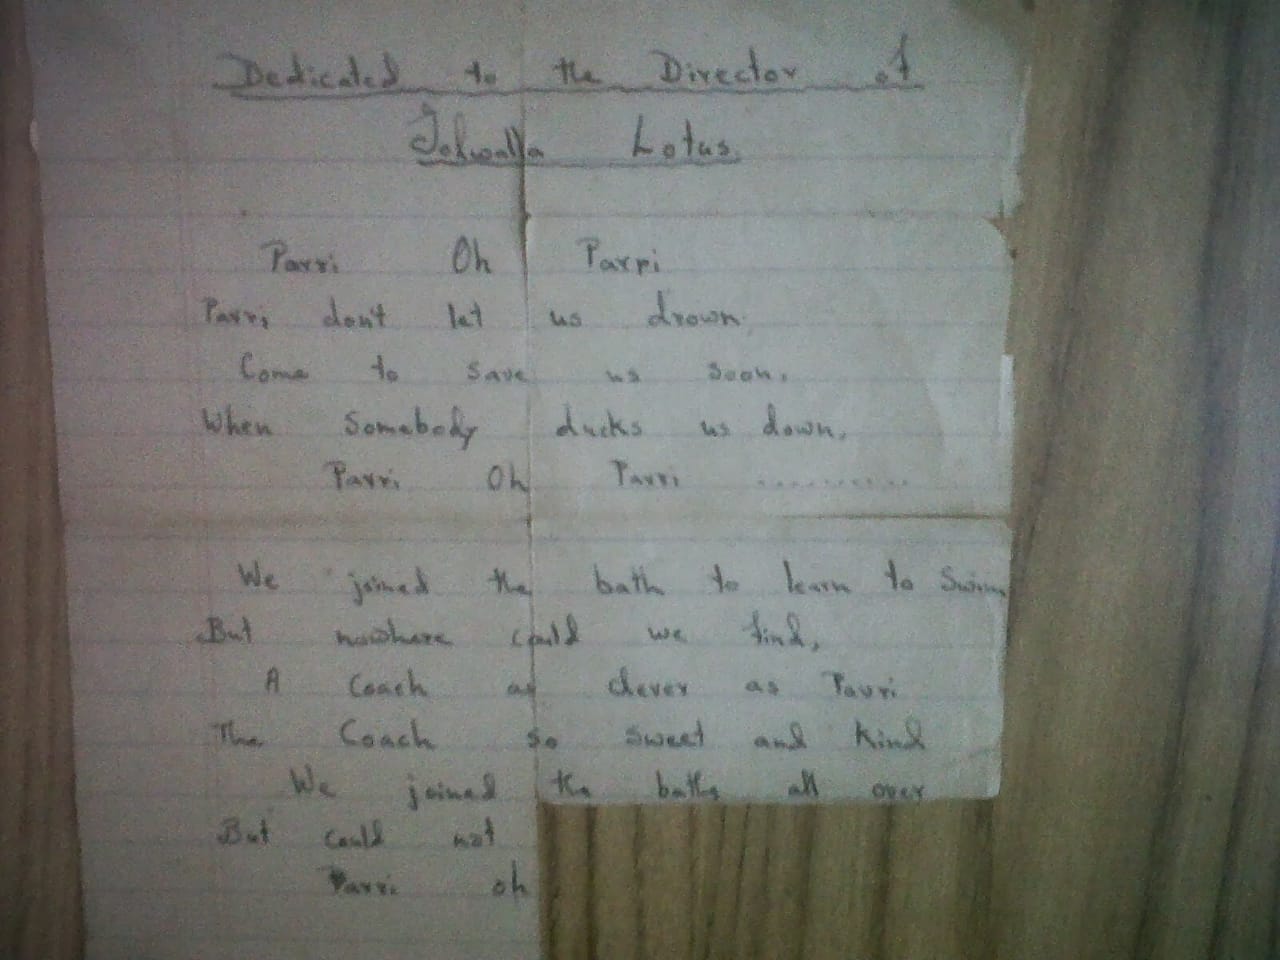 Dedicated to the Director of
Lotus.
Parri Oh Parri
Parri don't let us drown.
Come to save us soon.
When somebody ducks us down.
Parri Oh Parri ..........
We joined the bath to learn to Swim
But nowhere could we find,
A Coach as clever as Parri
The Coach so sweet and kind
We joined the baths all over
But could not
Parri oh